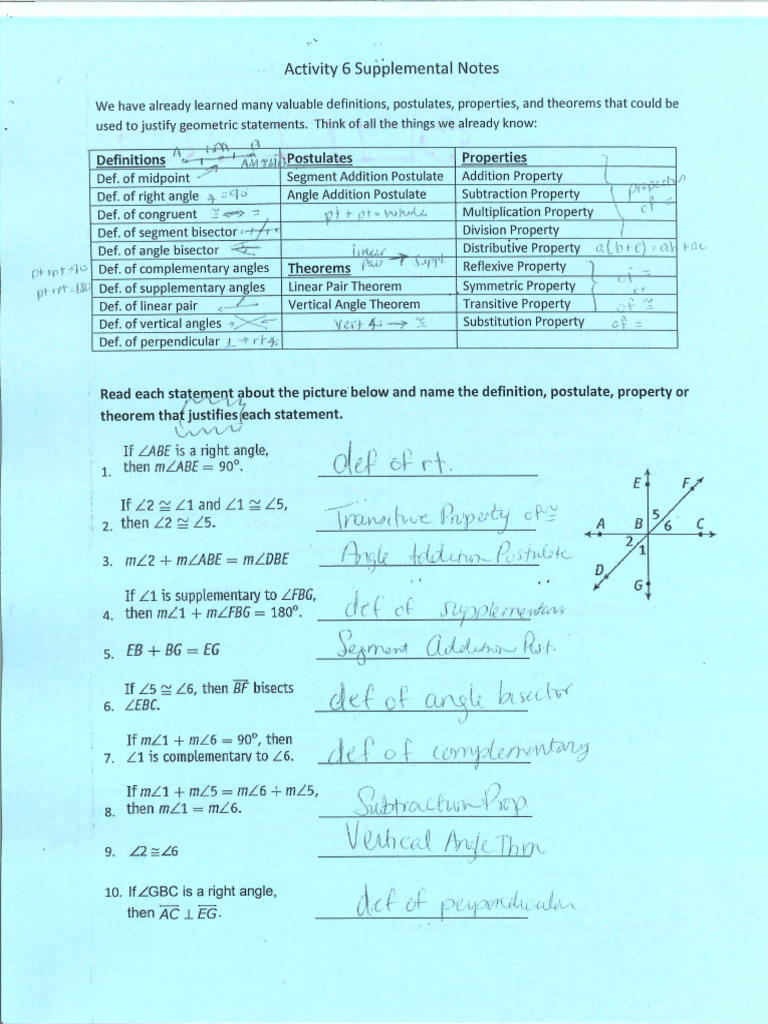 Activity 6 Supplemental Notes
We have already learned many valuable definitions, postulates, properties, and theorems that could be
used to justify geometric statements. Think of all the things we already know:
Definitions A M B AM≅MB Postulates Properties
Def. of midpoint Segment Addition Postulate Addition Property
Def. of right angle ∠=90° Angle Addition Postulate Subtraction Property properties
Def. of congruent ≅ ⟺ = pt + pt = whole Multiplication Property of =
Def. of segment bisector Division Property
Def. of angle bisector linear Distributive Property a(b+c)=ab+ac
Def. of complementary angles Theorems pair → suppl. Reflexive Property of =
Def. of supplementary angles Linear Pair Theorem Symmetric Property or
Def. of linear pair Vertical Angle Theorem Transitive Property of ≅
Def. of vertical angles vert ∠s → ≅ Substitution Property of =
Def. of perpendicular ⊥ → rt ∠s
Read each statement about the picture below and name the definition, postulate, property or
theorem that justifies each statement.
If ∠ABE is a right angle,
1. then m∠ABE = 90°. def of rt.
If ∠2 ≅ ∠1 and ∠1 ≅ ∠5,
2. then ∠2 ≅ ∠5. Transitive Property of ≅
3. m∠2 + m∠ABE = m∠DBE Angle Addition Postulate
If ∠1 is supplementary to ∠FBG,
4. then m∠1 + m∠FBG = 180°. def of supplementary
5. EB + BG = EG Segment Addition Post.
If ∠5 ≅ ∠6, then BF bisects
6. ∠EBC. def of angle bisector
If m∠1 + m∠6 = 90°, then
7. ∠1 is complementary to ∠6. def of complementary
If m∠1 + m∠5 = m∠6 + m∠5,
8. then m∠1 = m∠6. Subtraction Prop
9. ∠2 ≅ ∠6 Vertical Angle Thm
10. If ∠GBC is a right angle,
then AC ⊥ EG. def of perpendicular
E F
5
A B 6 C
2 1
D
G